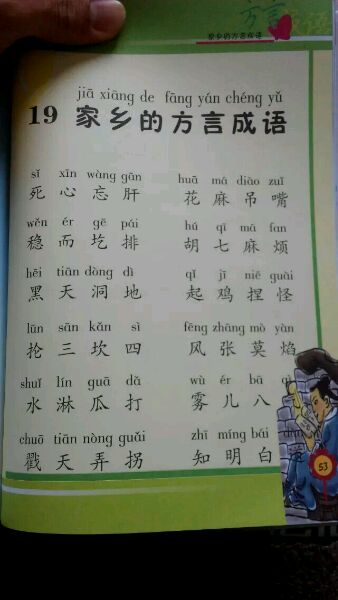 方言
家乡的方言成语
jiā xiāng de fāng yán chéng yǔ
19 家乡的方言成语
sǐ xīn wàng gān huā má diào zuǐ
死心忘肝 花麻吊嘴
wěn ér gē pái hú qī má fan
稳而圪排 胡七麻烦
hēi tiān dòng dì qǐ jī niē guài
黑天洞地 起鸡捏怪
lūn sān kǎn sì fēng zhāng mò yàn
抡三坎四 风张莫焰
shuǐ lín guā dǎ wù ér bā
水淋瓜打 雾儿八
chuō tiān nòng guǎi zhī míng bái
戳天弄拐 知明白
53